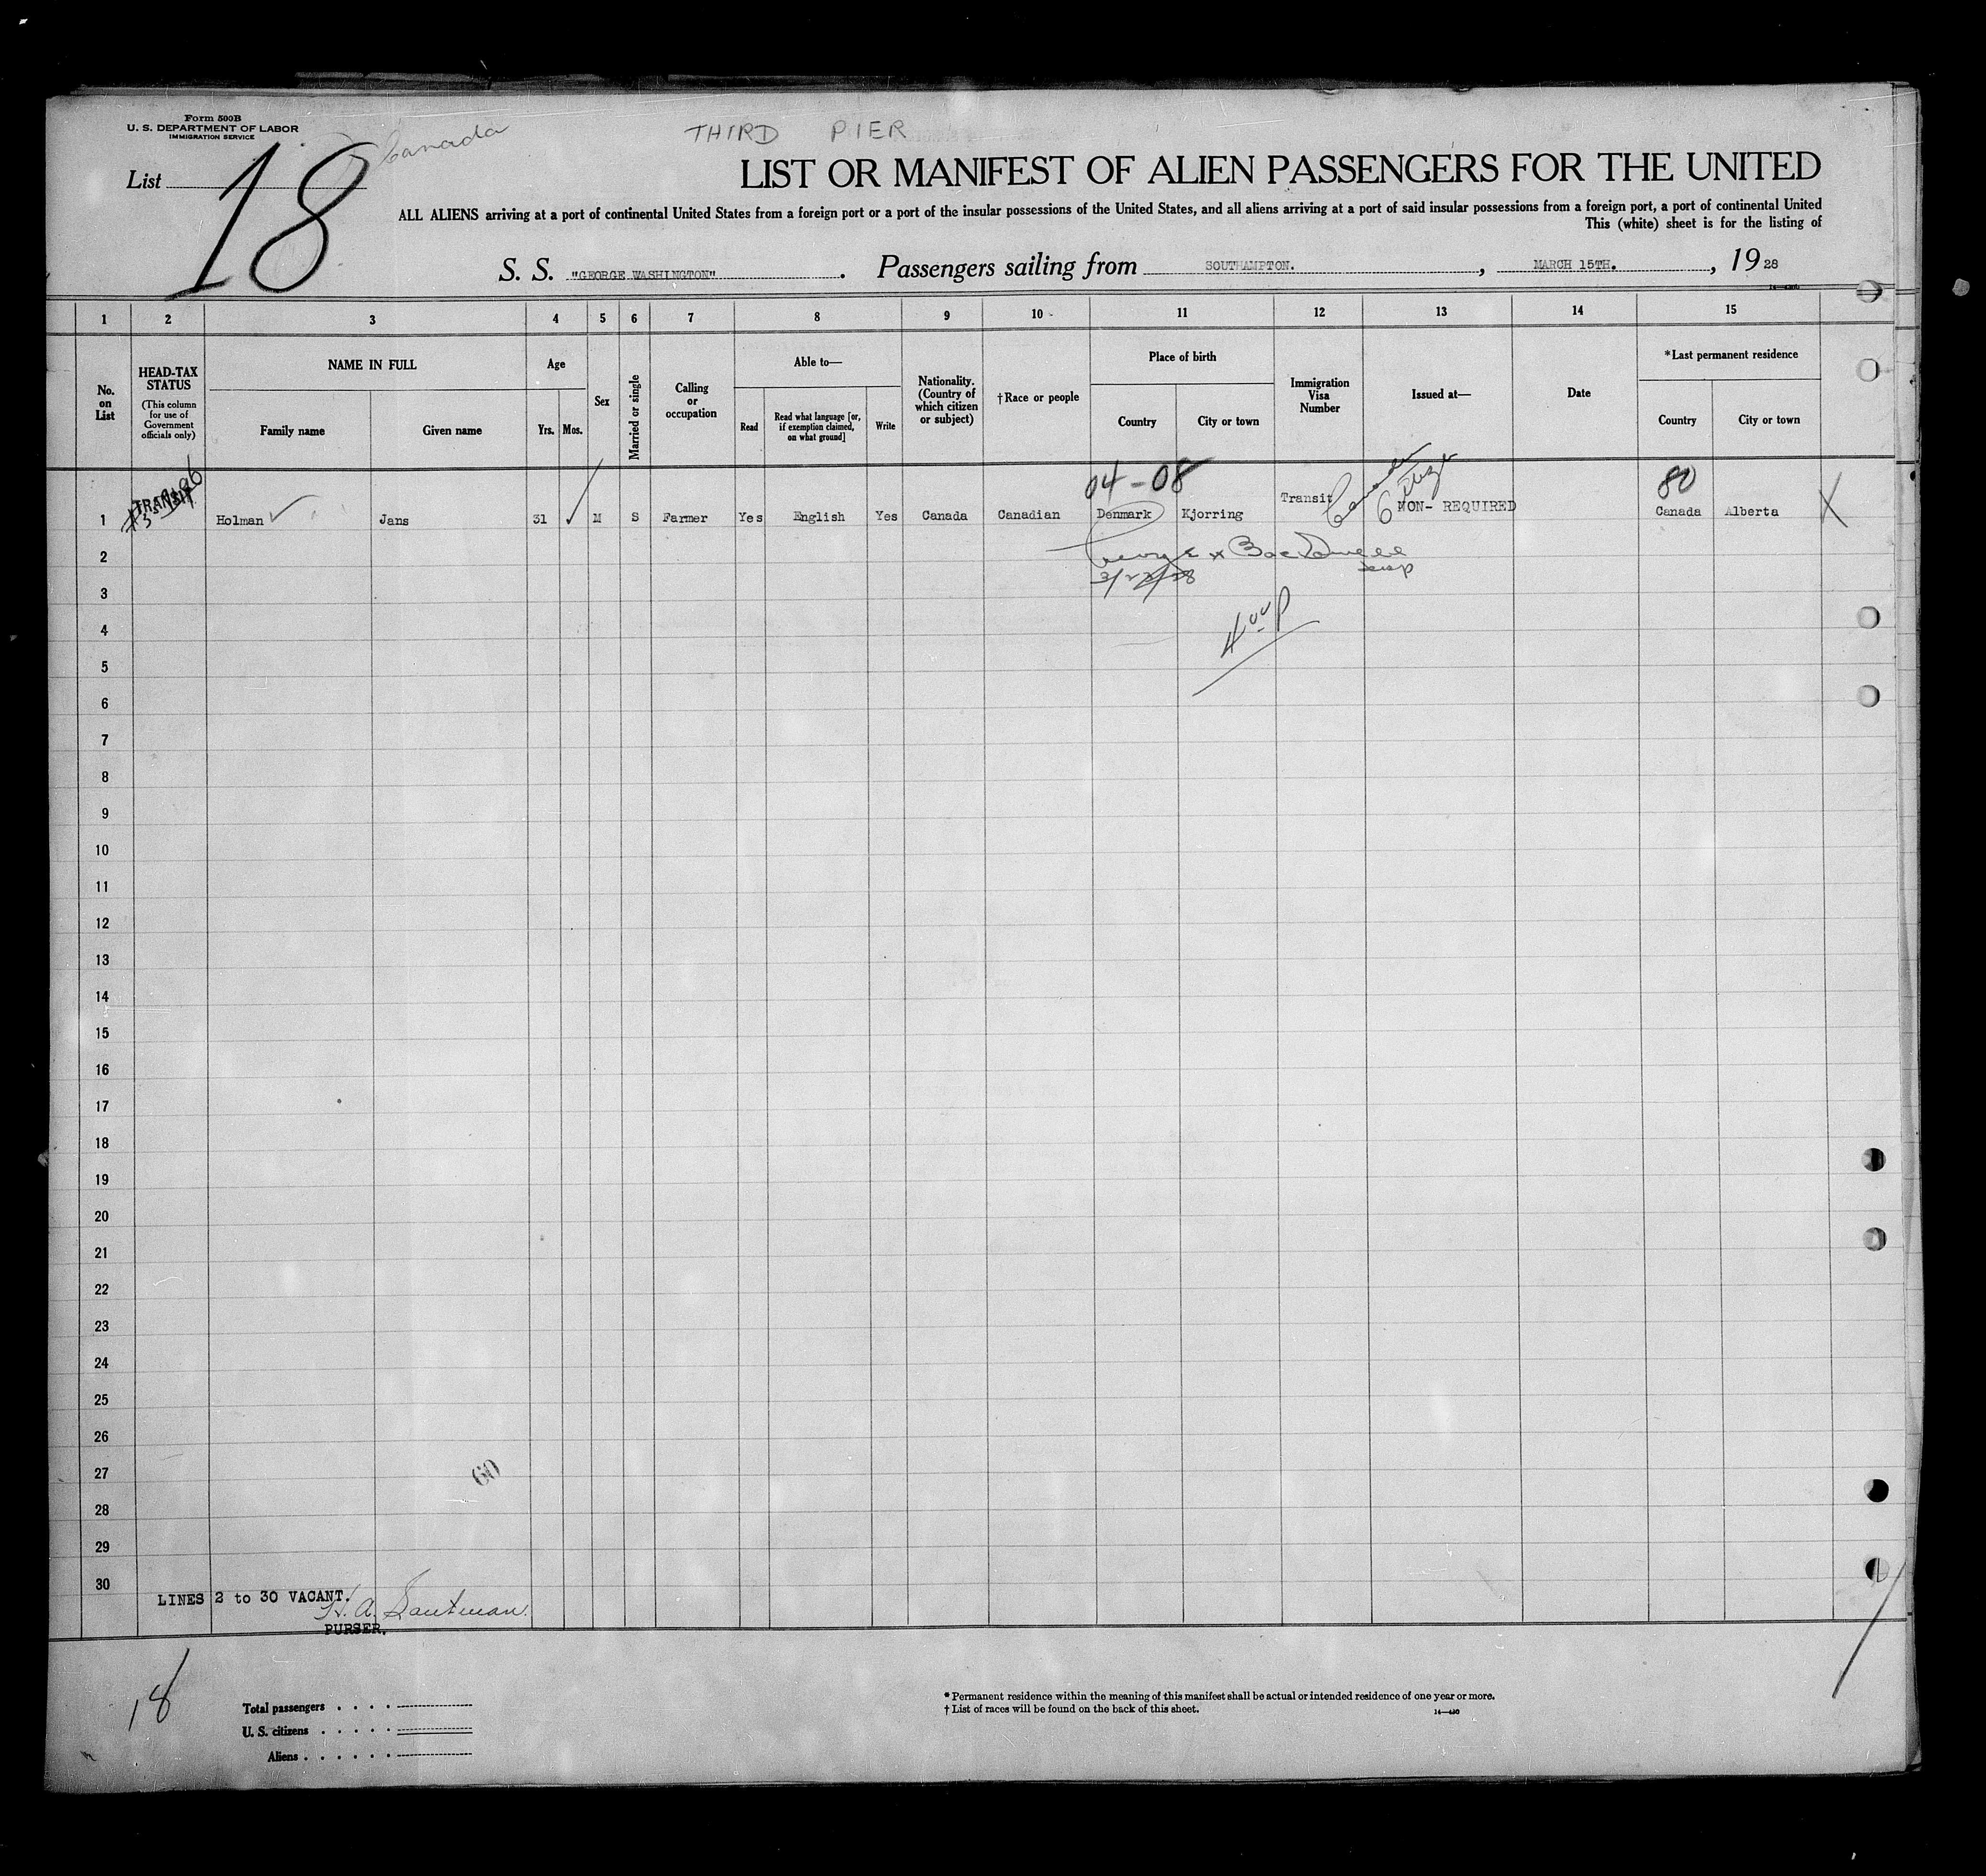 Form 500B
U. S. DEPARTMENT OF LABOR
IMMIGRATION SERVICE
Canada
THIRD PIER
List 18
LIST OR MANIFEST OF ALIEN PASSENGERS FOR THE UNITED
ALL ALIENS arriving at a port of continental United States from a foreign port or a port of the insular possessions of the United States, and all aliens arriving at a port of said insular possessions from a foreign port, a port of continental United
This (white) sheet is for the listing of
S. S. "GEORGE WASHINGTON" . Passengers sailing from SOUTHAMPTON. , MARCH 15TH. , 19 28
1 2 3 4 5 6 7 8 9 10 11 12 13 14 15
No. on List
HEAD-TAX STATUS
(This column for use of Government officials only)
NAME IN FULL
Family name
Given name
Age
Yrs. Mos.
Sex
Married or single
Calling or occupation
Able to—
Read
Read what language [or, if exemption claimed, on what ground]
Write
Nationality. (Country of which citizen or subject)
†Race or people
Place of birth
Country
City or town
Immigration Visa Number
Issued at—
Date
*Last permanent residence
Country
City or town
04-08
80
1 TRANSIT Holman Jans 31 M S Farmer Yes English Yes Canada Canadian Denmark Kjorring Transit NON- REQUIRED Canada Alberta X
2
3
4
5
6
7
8
9
10
11
12
13
14
15
16
17
18
19
20
21
22
23
24
25
26
27
60
28
29
30
LINES 2 to 30 VACANT.
PURSER.
18
Total passengers
U. S. citizens
Aliens
* Permanent residence within the meaning of this manifest shall be actual or intended residence of one year or more.
† List of races will be found on the back of this sheet.